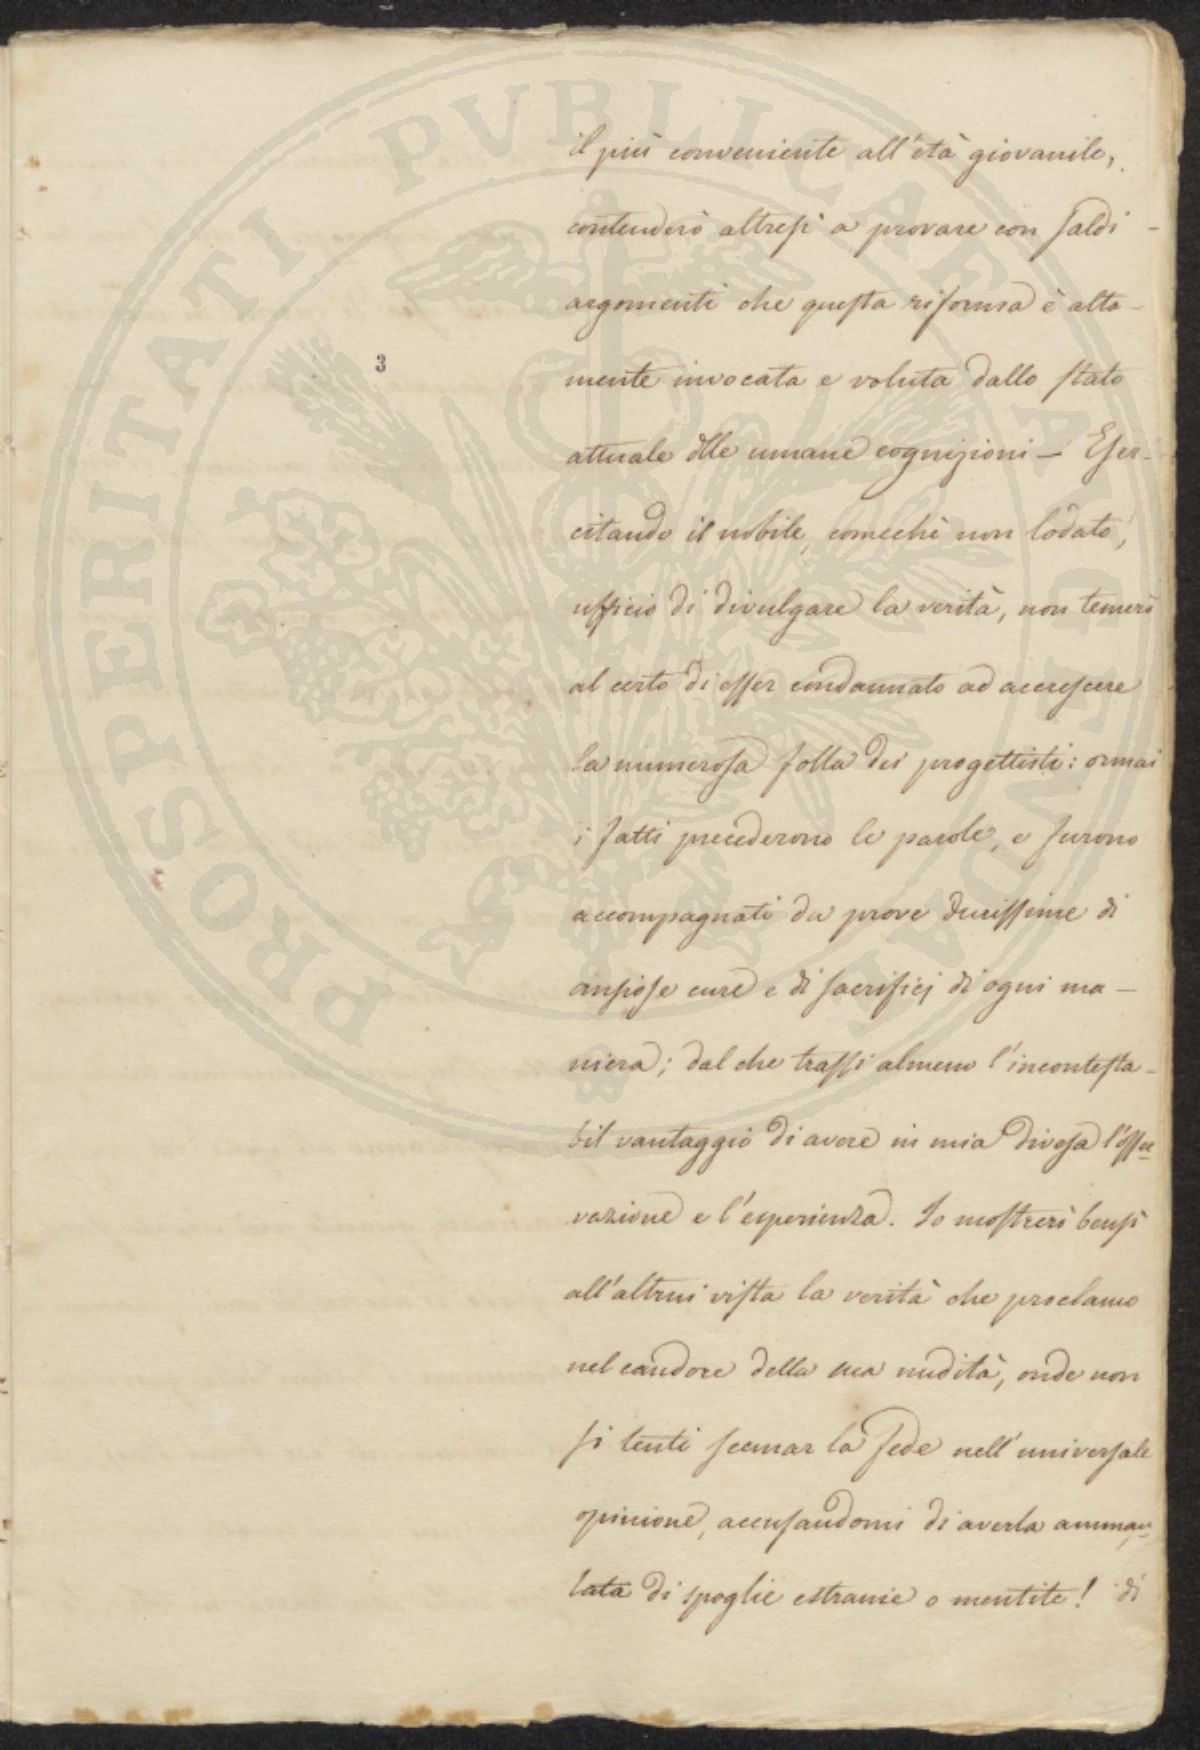 PROSPERITATI PUBLICAE AUGENDAE
3
il più conveniente all'età giovanile,
contenderò altresì a provare con saldi
argomenti che questa riforma è alta-
mente invocata e voluta dallo stato
attuale dlle umane cognizioni — Eser-
citando il nobile, comechè non lodato,
ufficio di divulgare la verità, non temerò
al certo di esser condannato ad accrescere
la numerosa folla dei progettisti: ormai
i fatti precederono le parole, e furono
accompagnati da prove durissime di
ansiose cure e di sacrificj di ogni ma-
niera; dal che trassi almeno l'incontesta-
bil vantaggio di avere in mia divesa l'osser-
vazione e l'esperienza. Io mostrerò bensì
all'altrui vista la verità che proclamo
nel candore della sua nudità, onde non
si tenti scemar la fede nell'universale
opinione, accusandomi di averla amman-
tata di spoglie estranie o mentite! di